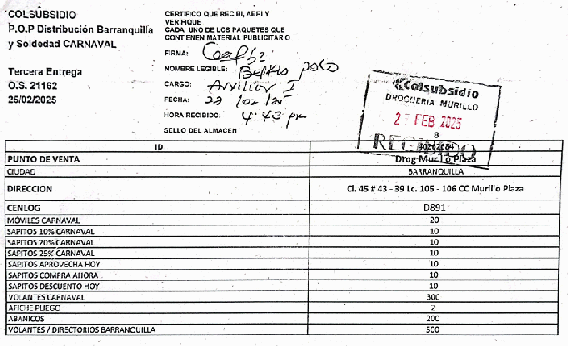 COLSUBSIDIO
P.O.P Distribución Barranquilla
y Soldedad CARNAVAL
Tercera Entrega
O.S. 21162
25/02/2025
CERTIFICO QUE RECIBI, ABRI Y
VERIFIQUE
CADA UNO DE LOS PAQUETES QUE
CONTIENEN MATERIAL PUBLICITARIO
FIRMA:
NOMBRE LEGIBLE:
CARGO: Auxiliar I
FECHA:
HORA RECIBIDO: 4:43 pm
SELLO DEL ALMACEN
Colsubsidio
DROGUERIA MURILLO
FEB 2025
8
ID
PUNTO DE VENTA Drog Murillo Plaza
CIUDAD BARRANQUILLA
DIRECCION Cl. 45 # 43 - 39 Lc. 105 - 106 CC Murillo Plaza
CENLOG D891
MÓVILES CARNAVAL 20
SAPITOS 10% CARNAVAL 10
SAPITOS 20% CARNAVAL 10
SAPITOS 25% CARNAVAL 10
SAPITOS APROVECHA HOY 10
SAPITOS COMPRA AHORA 10
SAPITOS DESCUENTO HOY 10
VOLANTES CARNAVAL 300
AFICHE PLIEGO 2
ABANICOS 200
VOLANTES / DIRECTORIOS BARRANQUILLA 500